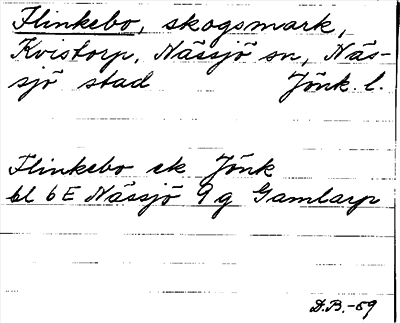 Flinkebo, skogsmark,
Kvistorp, Nässjö sn, Näs-
sjö stad Jönk. l.
Flinkebo ek Jönk
bl 6E Nässjö 9g Gamlarp
D.B.-59